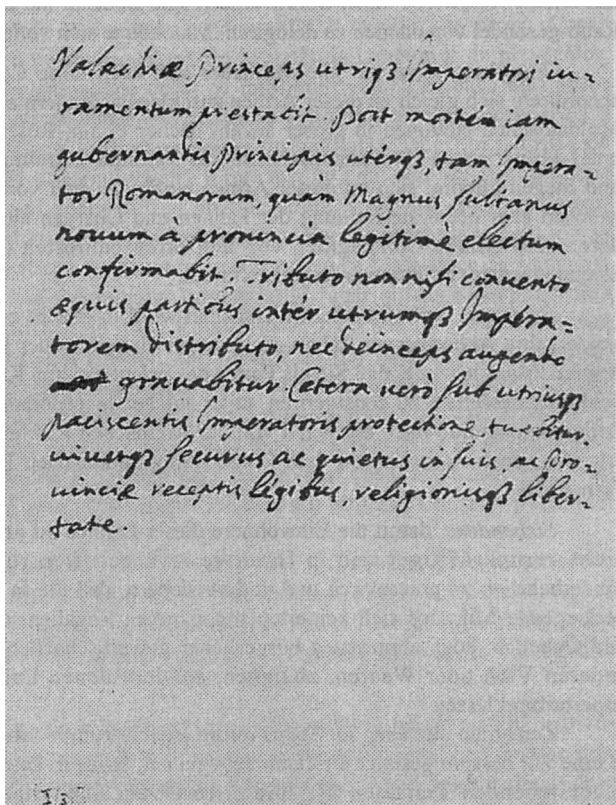 Valachiæ Princeps utriqꝫ Imperatori iu-
ramentum præstabit. Post mortem iam
gubernantis Principis uterqꝫ, tam Impera-
tor Romanorum, quàm Magnus Sultanus
novum à provincia legitimè electum
confirmabit. Tributo non nisi convento
æquis partibus inter utrumqꝫ Impera-
torem distributo, nec deinceps augendo
gravabitur. Cætera verò sub utriusqꝫ
paciscentis Imperatoris protectione tuebitur,
vivetqꝫ securus ac quietus in suis, ac Pro-
vinciæ receptis legibus, religionisqꝫ liber-
tate.